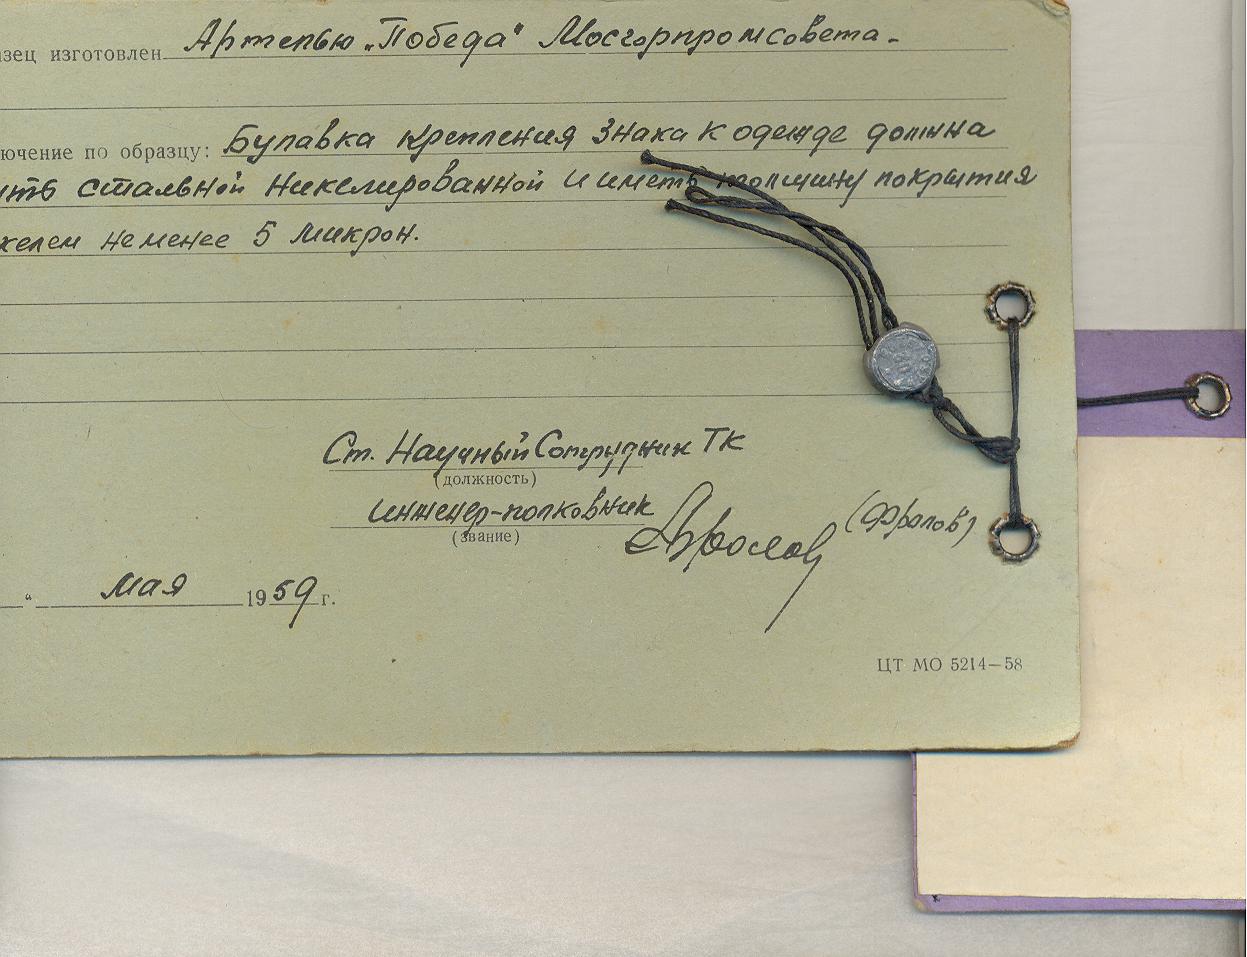 зец изготовлен Артелью „Победа" Мосгорпромсовета.
ючение по образцу: Булавка крепления знака к одежде должна
ыть стальной никелированной и иметь толщину покрытия
келем не менее 5 микрон.
Ст. Научный Сотрудник ТК
(должность)
инженер-полковник
(звание)
Фролов (Фролов)
" мая 1959 г.
ЦТ МО 5214—58